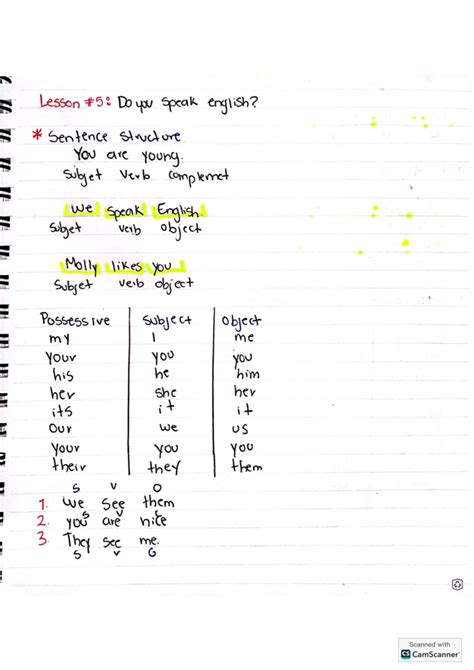 Lesson #5: Do you speak english?
* Sentence structure
You are young.
Subjet verb complemet
We speak English.
Subjet verb object
Molly likes you
Subjet verb object
Possessive subject object
my I me
your you you
his he him
her she her
its it it
our we us
your you you
their they them
S V O
1. We see them
S V C
2. you are nice
3. They see me.
S V O
Scanned with
CS CamScanner